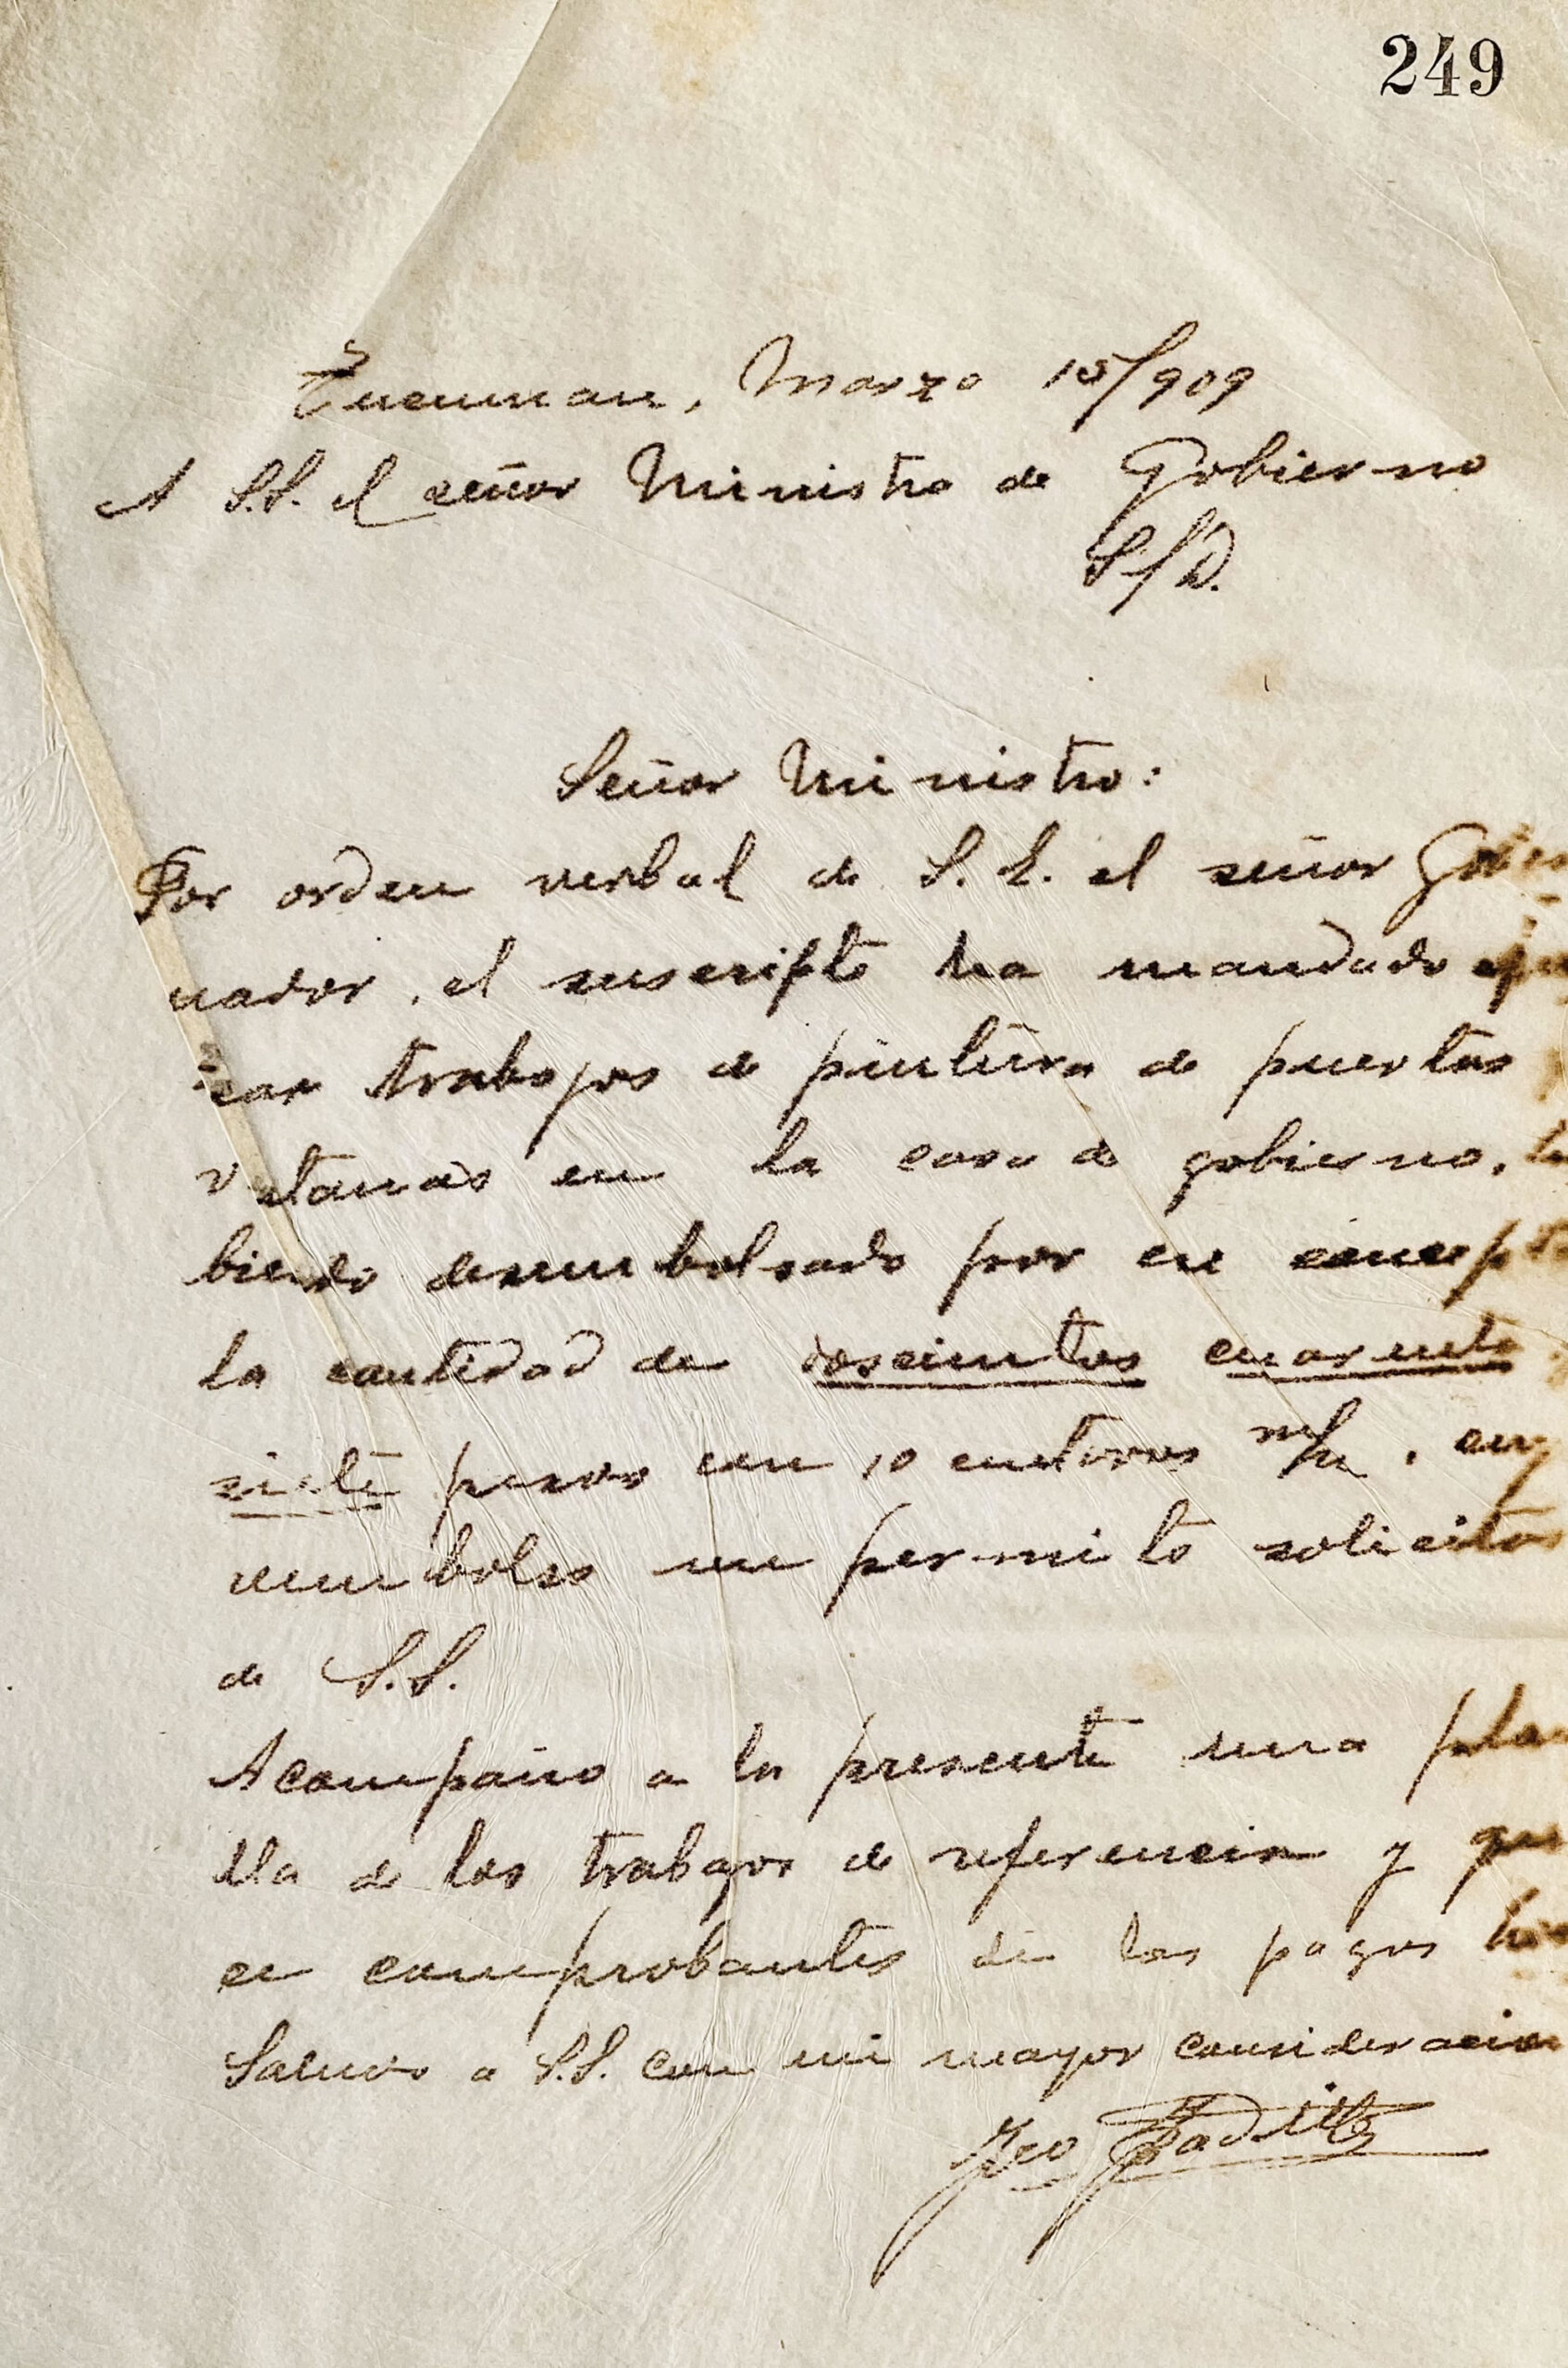 249
Tucuman, Marzo 15/909
A S.S. el señor Ministro de Gobierno
S/D.
Señor Ministro:
Por orden verbal de S. E. el señor Gober
nador, el suscripto ha mandado
trabajos de pintura de puertas
vetanas en la casa de gobierno, ha
biendo desembolsado por ese concepto
la cantidad de doscientos cuarenta y
siete pesos con 10 centavos m/n, cuy
reembolso me permito solicitar
de S.S.
Acompaño a la presente una plan
lla de los trabajos de referencia y quin
ce comprobantes de los pagos
Saludo a S.S. con mi mayor consideracion
Padilla